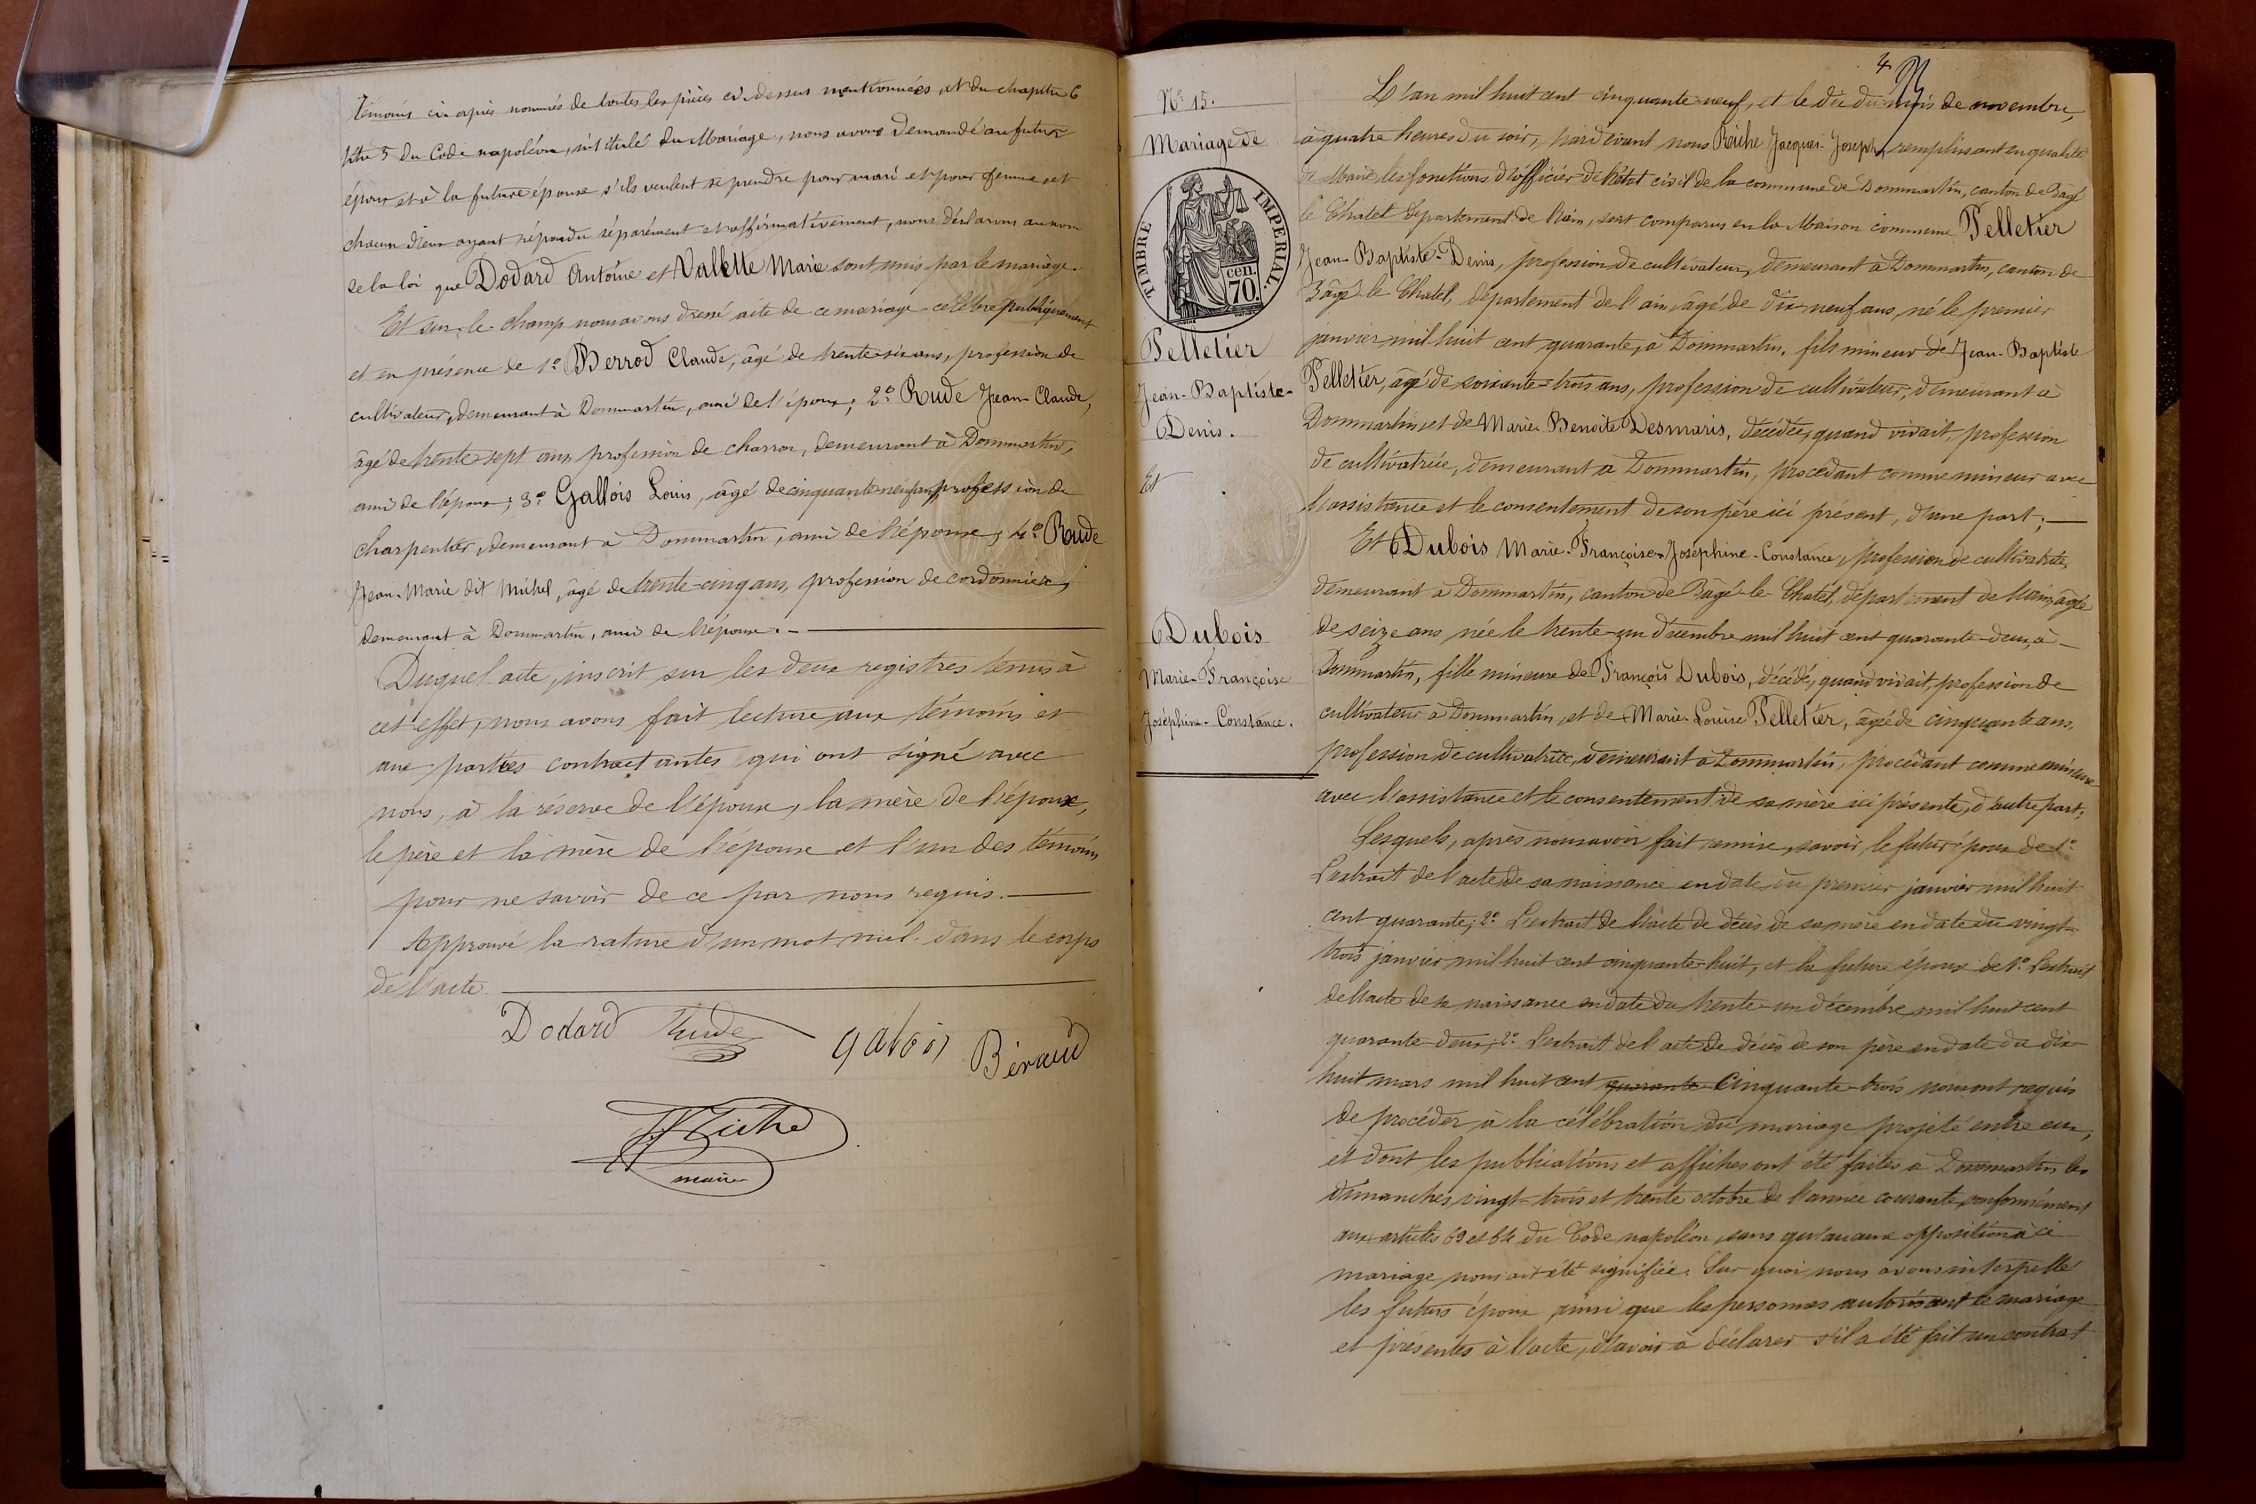 témoins ci-après nommés de toutes les pièces ci-dessus mentionnées, et du chapitre 6
titre 5 du Code napoléon, intitulé du Mariage, nous avons demandé au futur
époux et à la future épouse s'ils veulent se prendre pour mari et pour femme, et
chacun d'eux ayant répondu séparément et affirmativement, nous déclarons au nom
de la loi que Dodard Antoine et Valette Marie sont unis par le mariage.
Et sur-le-champ nous avons dressé acte de ce mariage célébré publiquement
et en présence de 1° Berrod Claude, âgé de trente-six ans, profession de
cultivateur, demeurant à Dommartin, ami de l'époux; 2° Rude Jean-Claude,
âgé de trente-sept ans, profession de charron, demeurant à Dommartin,
ami de l'époux; 3° Gallois Louis, âgé de cinquante-neuf ans, profession de
charpentier, demeurant à Dommartin, ami de l'épouse; 4° Rude
Jean-Marie dit Michel, âgé de trente-cinq ans, profession de cordonnier,
demeurant à Dommartin, ami de l'épouse.
Duquel acte, inscrit sur les deux registres tenus à
cet effet, nous avons fait lecture aux témoins et
aux parties contractantes qui ont signé avec
nous, à la réserve de l'épouse, la mère de l'époux,
le père et la mère de l'épouse et l'un des témoins
pour ne savoir de ce par nous requis.
Approuvé la rature d'un mot nul dans le corps
de l'acte
Dodard Rude galois Béraud
maire
4
N° 15.
Mariage de
TIMBRE IMPÉRIAL.
cen.
70.
Pelletier
Jean-Baptiste-
Denis.
Et
Dubois
Marie-Françoise
Joséphine-Constance.
L'an mil huit cent cinquante-neuf, et le dix du mois de novembre,
à quatre heures du soir, pardevant nous Riche Jacques-Joseph, remplissant en qualité
de Maire les fonctions d'officier de l'état civil de la commune de Dommartin, canton de Bâgé
le Chatel, département de l'ain, sont comparus en la Maison commune Pelletier
Jean-Baptiste-Denis, profession de cultivateur, demeurant à Dommartin, canton de
Bâgé-le-Chatel, département de l'ain, âgé de dix-neuf ans, né le premier
janvier mil huit cent quarante, à Dommartin, fils mineur de Jean-Baptiste
Pelletier, âgé de soixante-trois ans, profession de cultivateur, demeurant à
Dommartin, et de Marie-Benoite Desmaris, décédée, quand vivait, profession
de cultivatrice, demeurant à Dommartin, procédant comme mineur avec
l'assistance et le consentement de son père ici présent, d'une part;
Et Dubois Marie-Françoise-Joséphine-Constance, profession de cultivatrice,
demeurant à Dommartin, canton de Bâgé-le-Chatel, département de l'ain, âgée
de seize ans née le trente-un décembre mil huit cent quarante-deux, à
Dommartin, fille mineure de François Dubois, décédé, quand vivait, profession de
cultivateur à Dommartin, et de Marie-Louise Pelletier, âgée de cinquante ans,
profession de cultivatrice, demeurant à Dommartin, procédant comme mineure
avec l'assistance et le consentement de sa mère ici présente, d'autre part;
Lesquels, après nous avoir fait remise, savoir, le futur époux de 1°
L'extrait de l'acte de sa naissance en date du premier janvier mil huit
cent quarante; 2° L'extrait de l'acte de décès de sa mère en date du vingt-
trois janvier mil huit cent cinquante-huit, et la future épouse de 1° L'extrait
de l'acte de sa naissance en date du trente-un décembre mil huit cent
quarante-deux; 2° L'extrait de l'acte de décès de son père en date du dix-
huit mars mil huit cent quarante cinquante-trois nous ont requis
de procéder à la célébration du mariage projeté entre eux,
et dont les publications et affiches ont été faites à Dommartin les
dimanches vingt-trois et trente octobre de l'année courante, conformément
aux articles 63 et 64 du Code napoléon, sans qu'aucune opposition à ce
mariage nous ait été signifiée. Sur quoi nous avons interpellé
les futurs époux, ainsi que les personnes autorisant le mariage
et présentes à l'acte, d'avoir à déclarer s'il a été fait un contrat